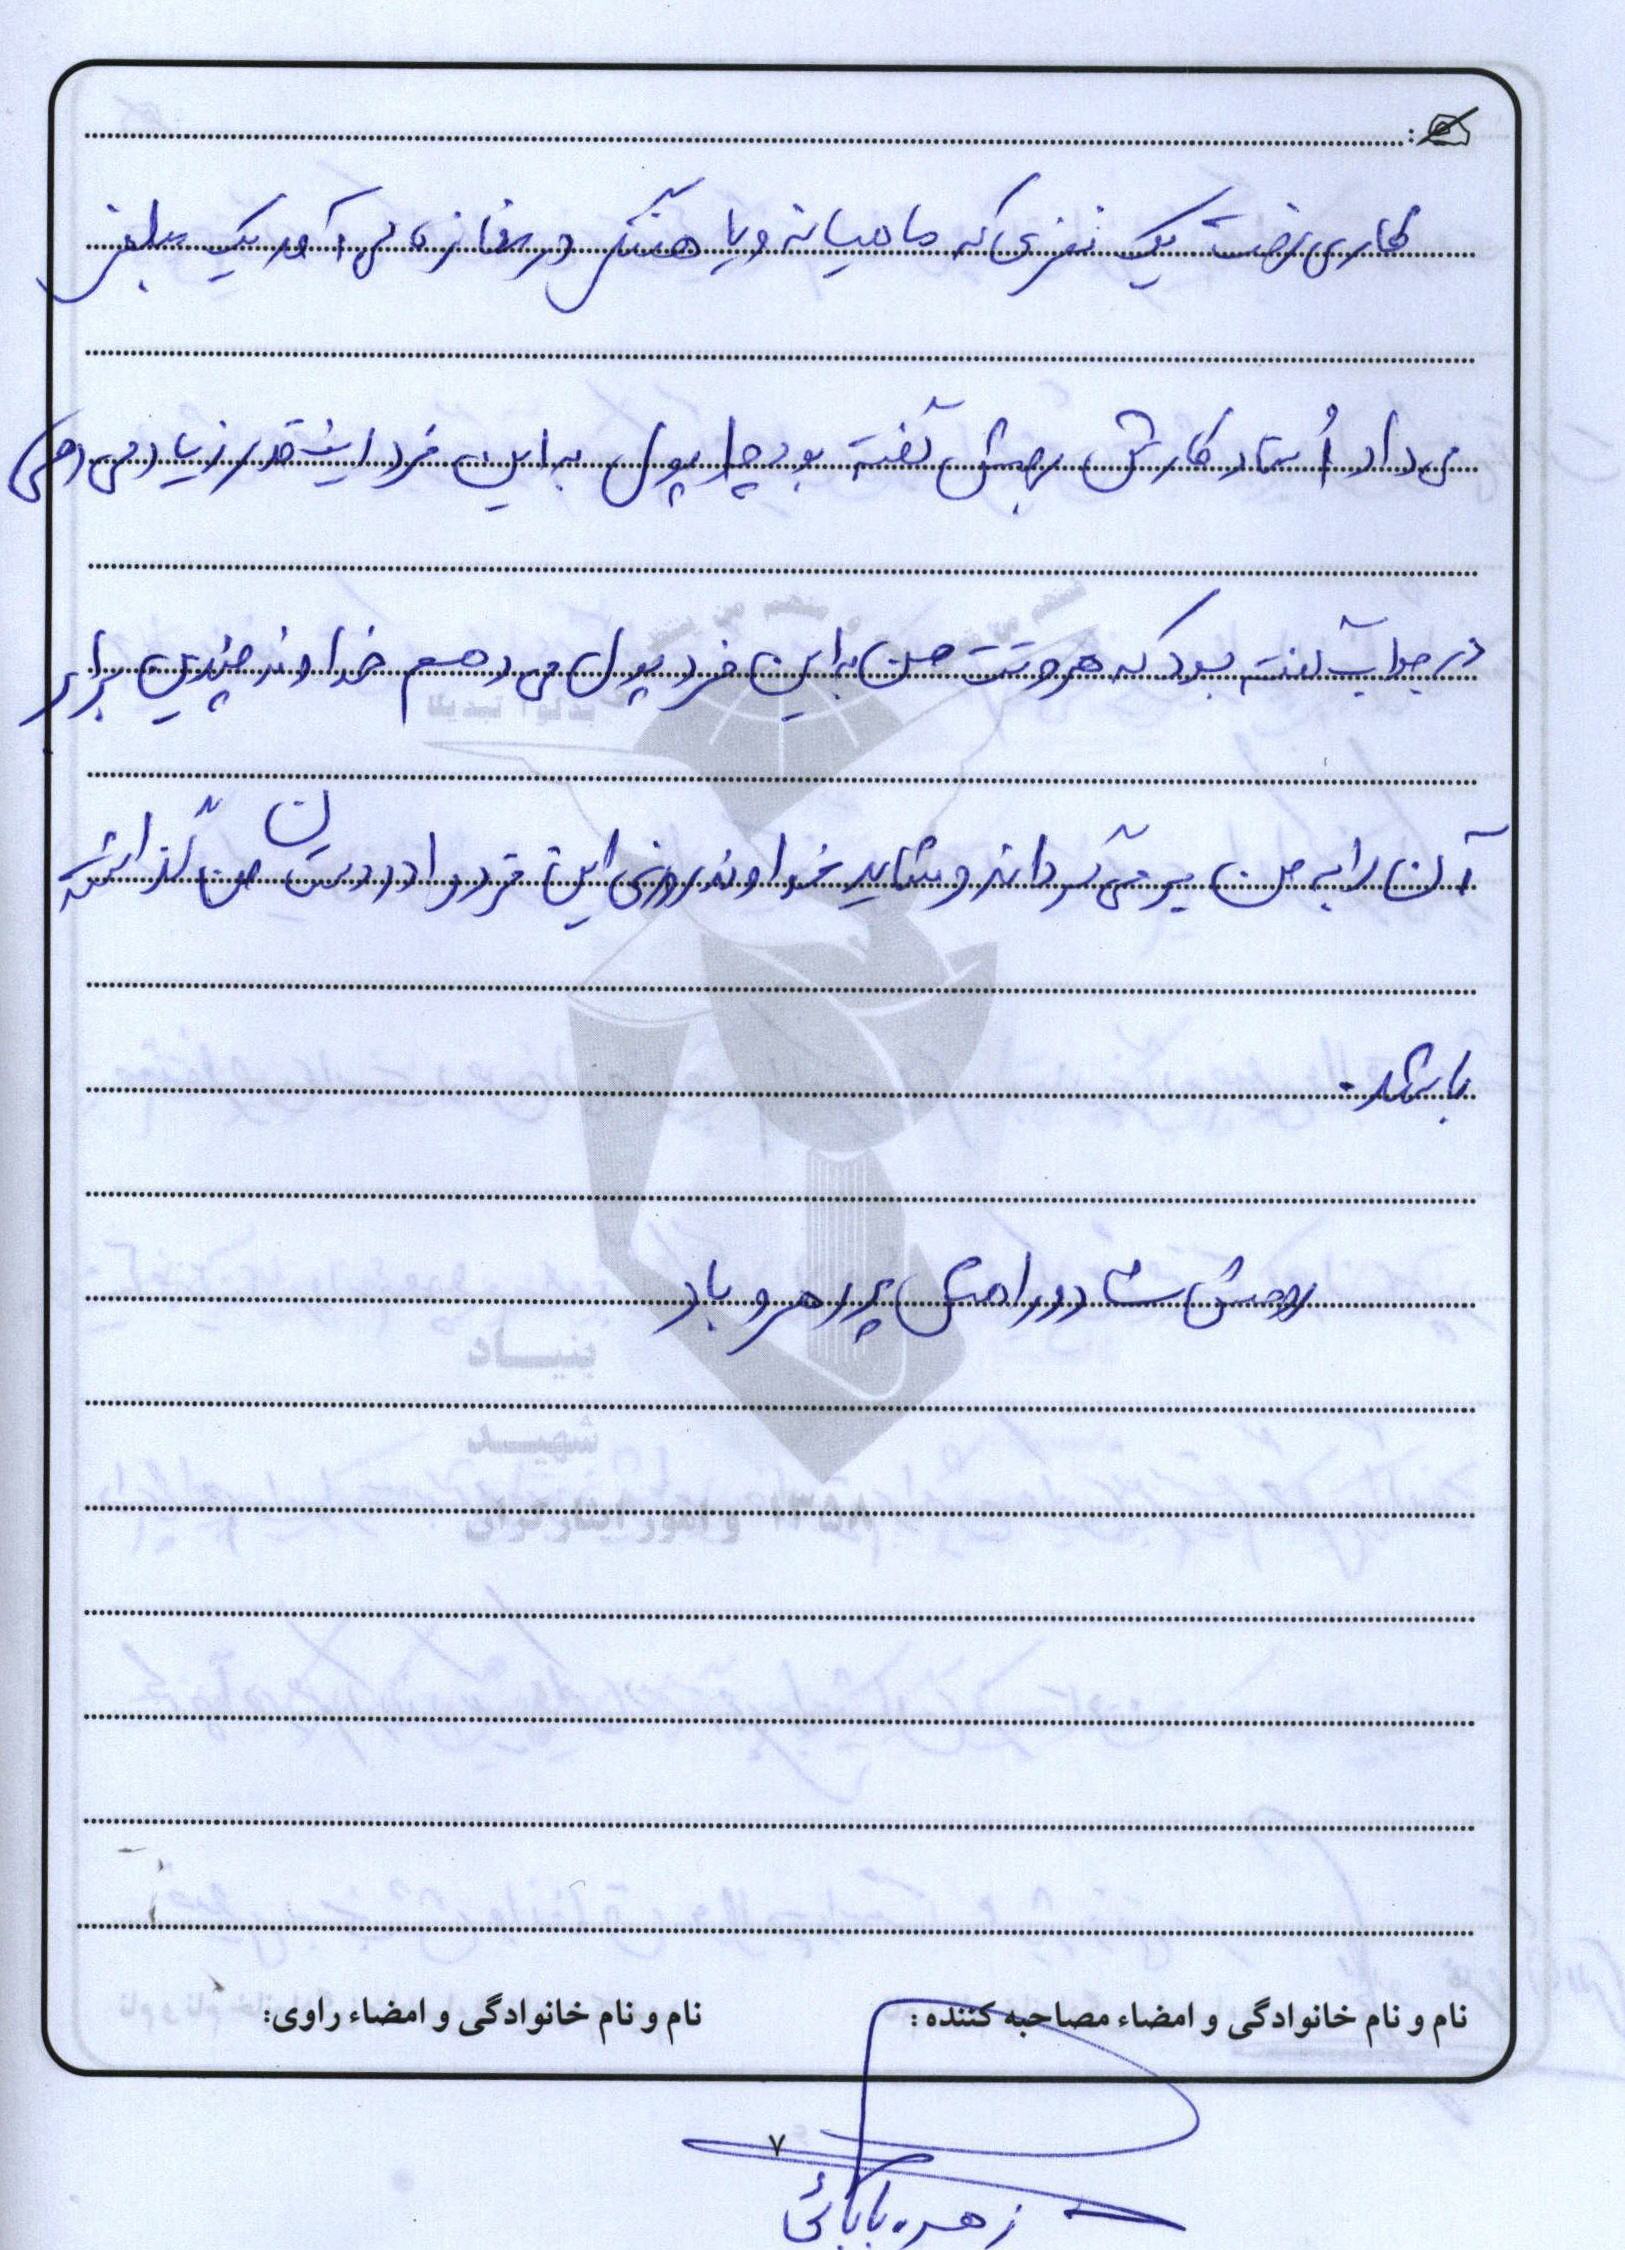 کاری نداشت یک نفری که ماهیانه ویا هفتگی در مغازه می آمد یک مبلغی
می داد اُستاد کارش بهش گفته بود چرا پول به این فرد اینقدر زیاد می دهی
در جواب گفته بود که هر وقت من به این فرد پول می دهم خداوند چندین برابر
آن را به من بر می گرداند و شاید خداوند روزی این فرد را در دستان من گذاشته
باشد.
روحش شاد و راهش پر رهرو باد
بنیاد
شهید
و امور ایثارگران ۱۳۵۸
نام و نام خانوادگی و امضاء مصاحبه کننده :
نام و نام خانوادگی و امضاء راوی:
۷
زهره بابائی